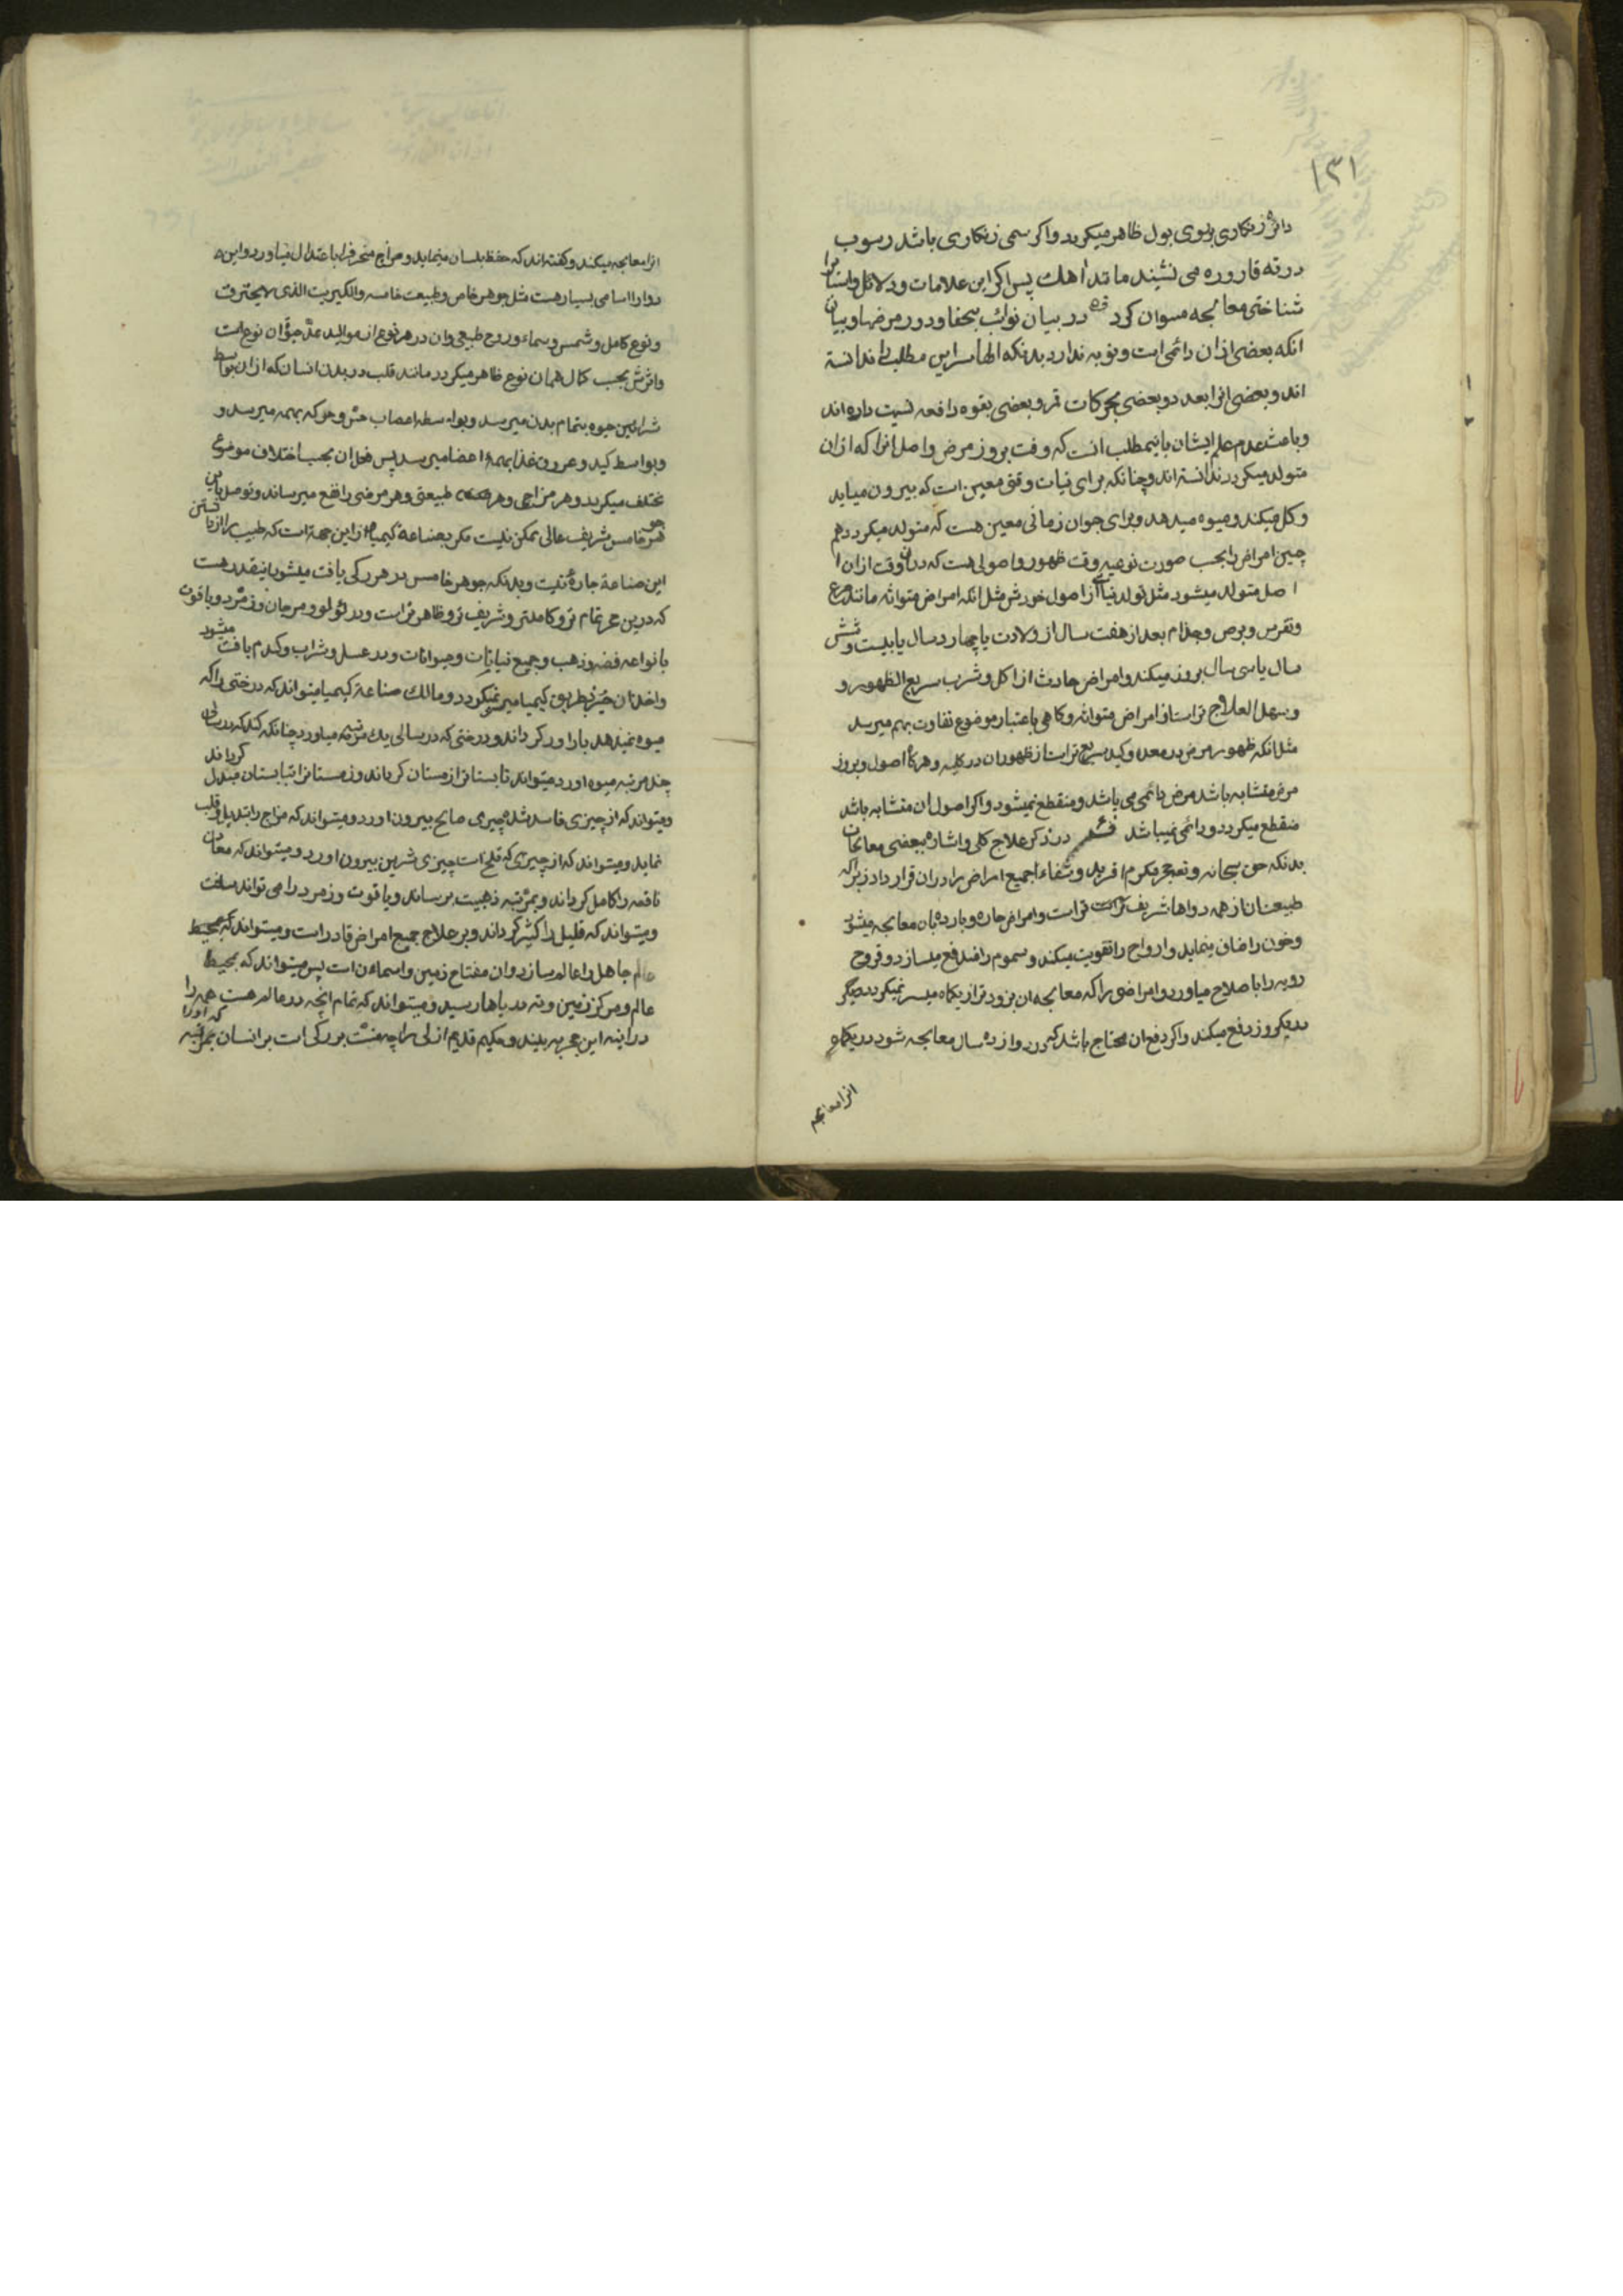 ۱۳۱
دائره زنکاری بر روی بول ظاهر میکردد واکر سمی زنکاری باشد رسوب
در ته قاروره می نشیند مانند اهک پس اکر این علامات و دلائل را
شناختی معالجه میتوان کرد در بیان نوائب تبها و دور مرضها و بیان
انکه بعضی ازان دائمی است و نوبه ندارد بدنکه اطبا سر این مطلب را ندانسته
اند و بعضی انرا بعدد و بعضی بحرکات قمر و بعضی بقوه دافعه نسبت داده اند
و باعث عدم علم ایشان باین مطلب انست که وقت بروز مرض و اصل انرا که ازان
متولد میکردد ندانسته اند و چنانکه برای نبات وقتی معین است که بیرون میاید
و کل میکند و میوه میدهد و برای حیوان زمانی معین هست که متولد میکردد هم
چنین امراض را بحسب صورت نوعیه وقت ظهور و اصولی هست که دران وقت ازان
اصل متولد میشود مثل تولد نبات از اصول خودش مثل انکه امراض متوارثه مانند صرع
و نقرس و برص و جذام بعد از هفت سال از ولادت یا چهارده سال یا بیست و شش
سال یا سی سال بروز میکند و امراض حادث از اکل و شرب سریع الظهور و
و سهل العلاج تراست از امراض متوارثه و کاهی باعتبار موضوع تفاوت بهم میرسد
مثل انکه ظهور مرض در معده و کبد سریع تراست از ظهور ان در کلیه و هرکاه اصول و بروز
مرض متشابه باشد مرض دائمی می باشد و منقطع نمیشود و اکر اصول ان متشابه باشد
منقطع میکردد و دائمی نمیباشد در ذکر علاج کلی و اشاره ببعضی معالجات
بدنکه حق سبحانه و تعالی افرید و شفاء جمیع امراض را دران قرار داد زیراکه
طبیعت ان از همه دواها شریف تراست و امراض حاره و بارده بان معالجه میشود
و خون را صاف مینماید و ارواح را تقویت میکند و سموم را دفع میسازد و قروح
ردیه را باصلاح میاورد و امراضی را که معالجه ان بزودتر از یکماه میسر نمیکردد دیکر
بیکروز رفع میکند و اکر دفع ان محتاج باشد که در دوازده سال معالجه شود در یکماه
انرا معالجه
انرا معالجه میکند و کفته اند که حفظ بلسان مینماید و مزاج منحرف را باعتدال میاورد و این
دوا را اسامی بسیار هست مثل جوهر خاص و طبیعت خامسه و الکبریت الذی لا یحترق
و نوع کامل و شمس و سماء و روح طبیعی و ان در هر نوع از موالید نوع است
و اثرش بحسب کمال همان نوع ظاهر میکردد مانند قلب در بدن انسان که ازان بواسطه
شرایین حیوه بتمام بدن میرسد و بواسطه اعصاب حس و حرکه بهمه میرسد و
و بواسطه کبد و عروق غذا بهمه اعضا میرسد پس فعل ان بحسب اختلاف موضوع
مختلف میکردد و هر مزاجی و هر طبیعتی و هر مرضی را نفع میرساند و توصل باین
جوهر خامس شریف عالی ممکن نیست مکر بصناعة کیمیا و از این جهة است که طبیب را از دانستن
این صناعة چاره نیست و بدنکه جوهر خامس در هر مرکبی یافت میشود اینقدر هست
که درین حجر تمام تر و کاملتر و شریف تر و ظاهر تراست و در لولو و مرجان و زمرد و یاقوت
بانواعه فضه و ذهب و جمیع نباتات و حیوانات و در عسل و شراب و کندم یافت میشود
و اخذ ان جز بطریق کیمیا میسر نمیکردد و مالک صناعة کیمیا میتواند که درختی را که
میوه نمیدهد باراور کرداند و درختی که در سالی یک مرتبه میاورد چنانکه کند که در سالی
چند مرتبه میوه اورد و میتواند تابستانرا زمستان کرداند و زمستانرا بتابستان مبدل کرداند
و میتواند که از چیزی فاسد شده چیزی صالح بیرون اورد و میتواند که مزاج را تبدیل و قلب
نماید و میتواند که از چیزی که تلخ است چیزی شیرین بیرون اورد و میتواند که معادن
ناقصه را کامل کرداند و بمرتبه ذهبیت برساند و یاقوت و زمرد را می تواند ساخت
و میتواند که قلیل را کثیر کرداند و بر علاج جمیع امراض قادر است و میتواند که
جاهل را عالم سازد و ان مفتاح زمین و اسمان است پس میتواند که بمحیط
عالم و مرکز زمین و ته دریاها رسید و میتواند که تمام انچه در عالم هست همه را
در اینه این حجر ببیند و حکیم قدیم ازلی را چه منت بزرکی است بر انسان که او را بمرتبه